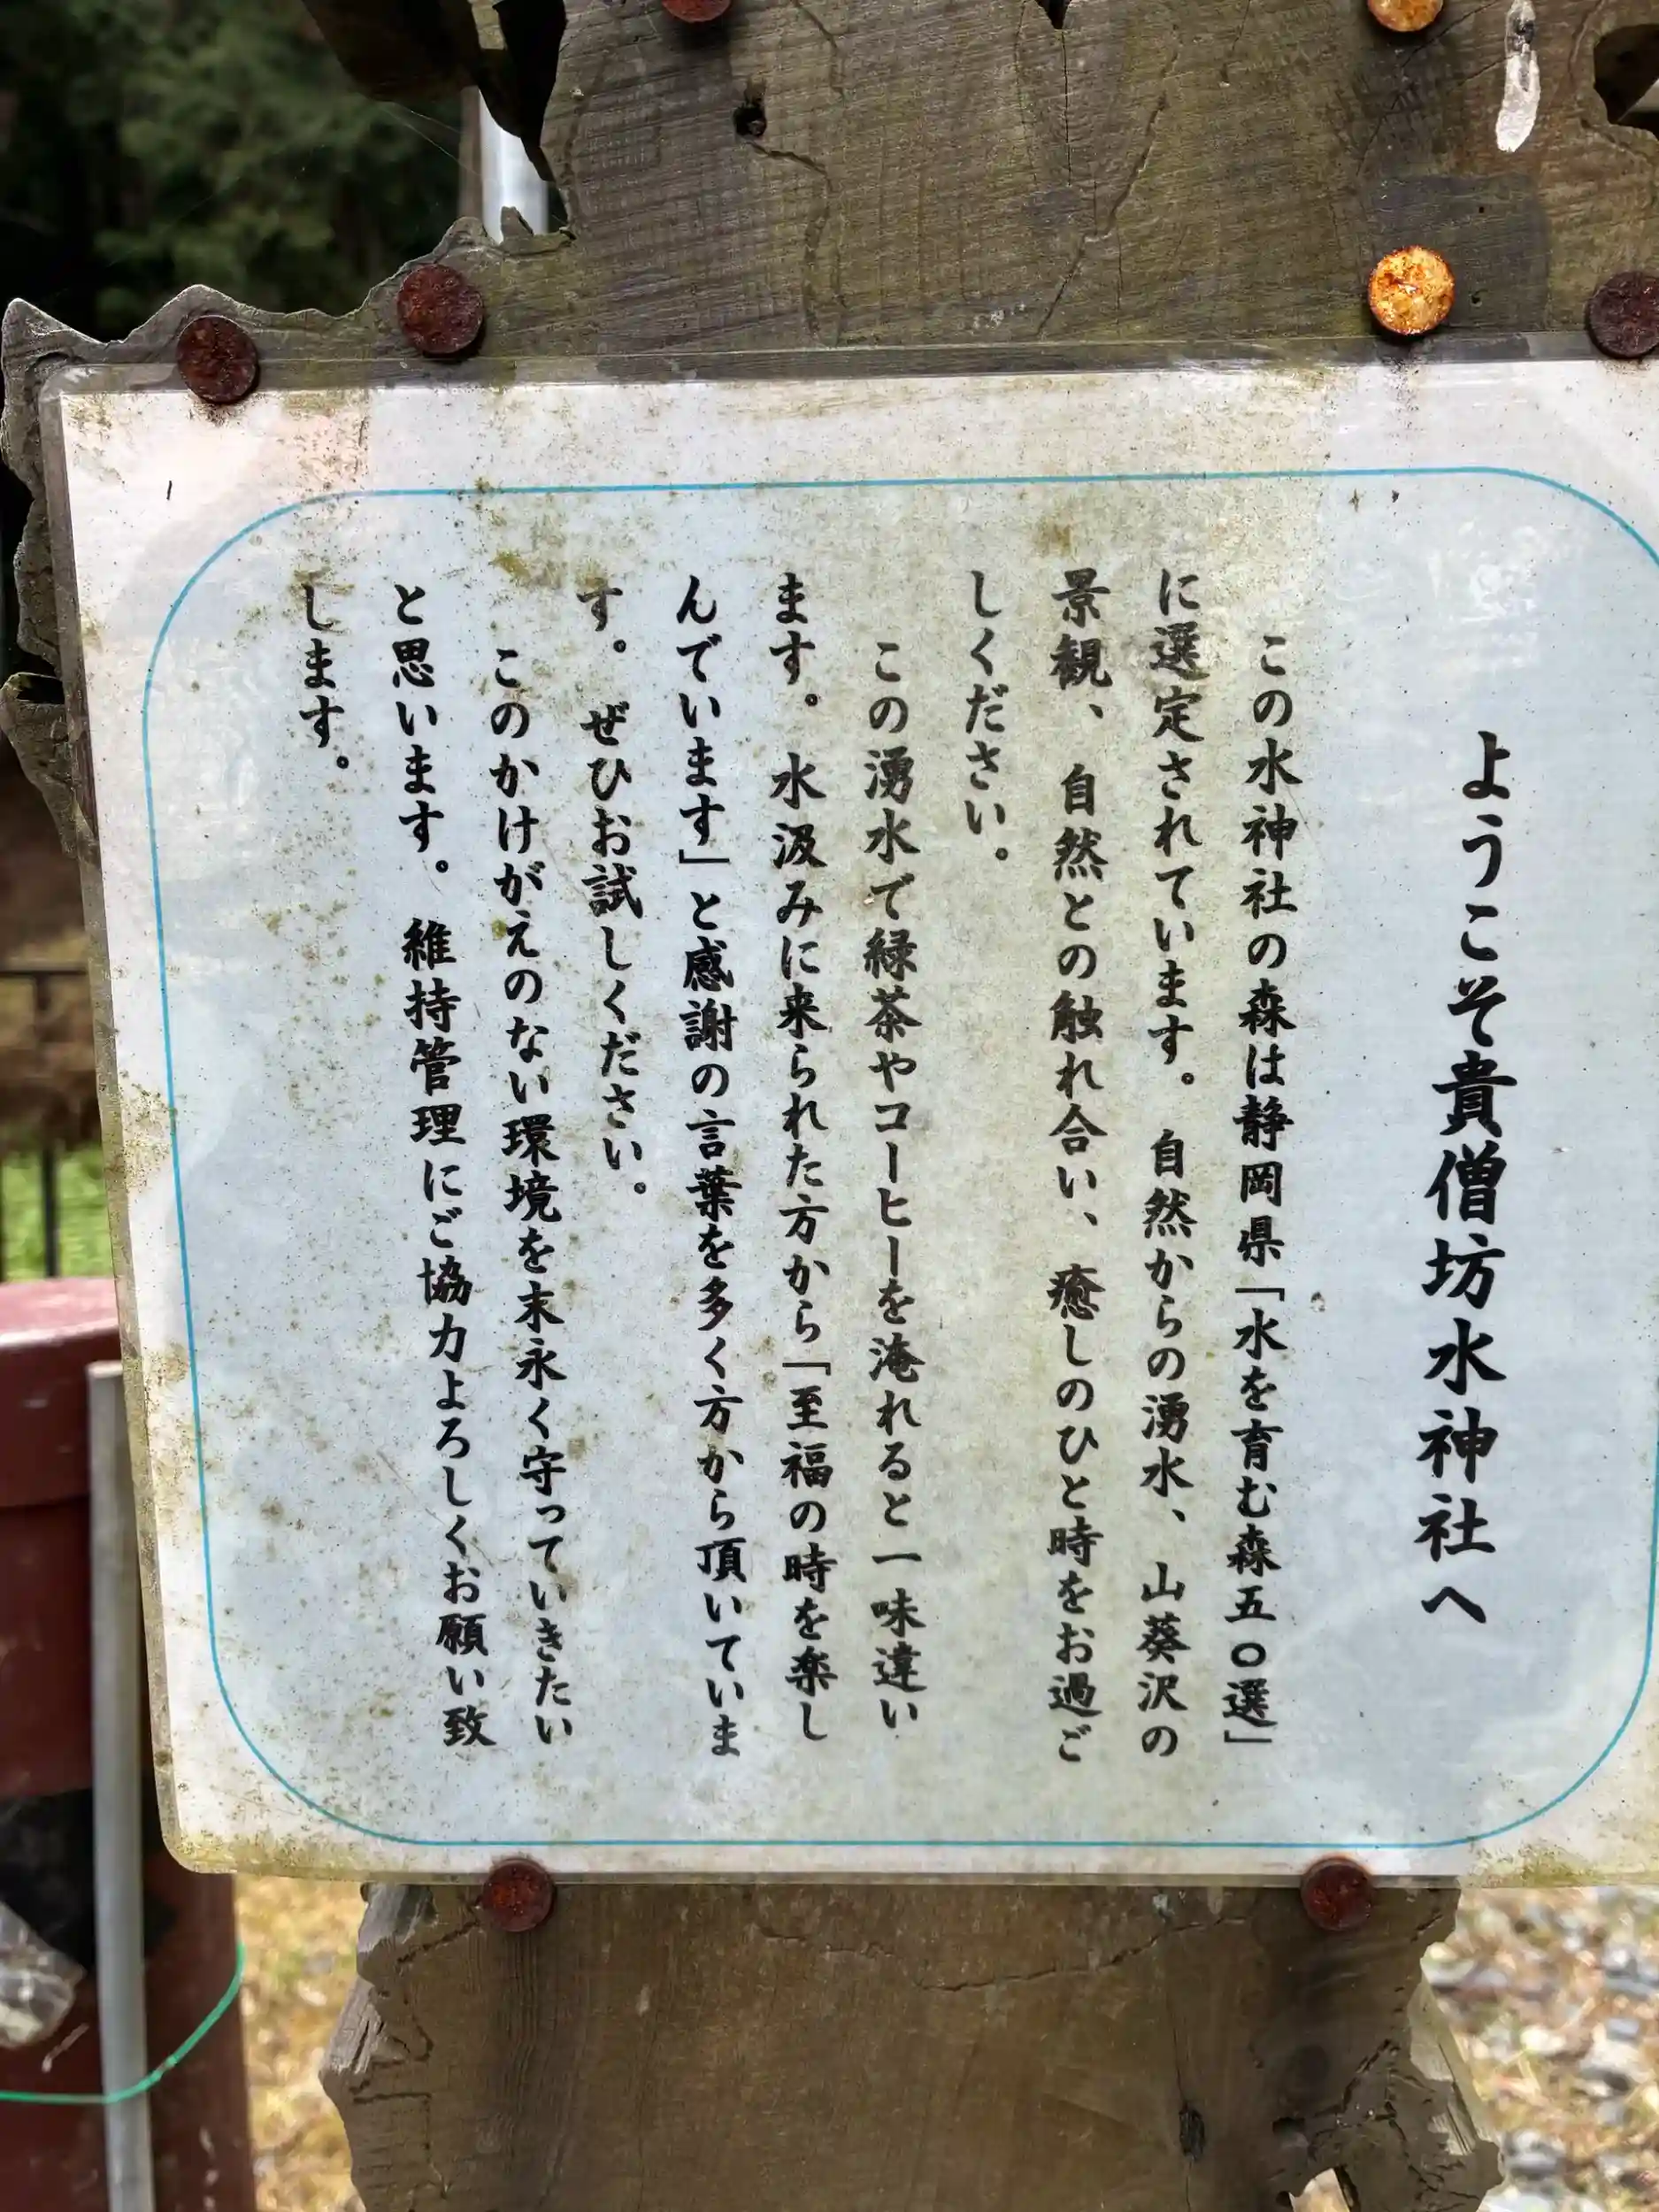 ようこそ貴僧坊水神社へ
この水神社の森は静岡県「水を育む森五〇選」
に選定されています。自然からの湧水、山葵沢の
景観、自然との触れ合い、癒しのひと時をお過ご
しください。
この湧水で緑茶やコーヒーを淹れると一味違い
ます。水汲みに来られた方から「至福の時を楽し
んでいます」と感謝の言葉を多く方から頂いていま
す。ぜひお試しください。
このかけがえのない環境を末永く守っていきたい
と思います。維持管理にご協力よろしくお願い致
します。